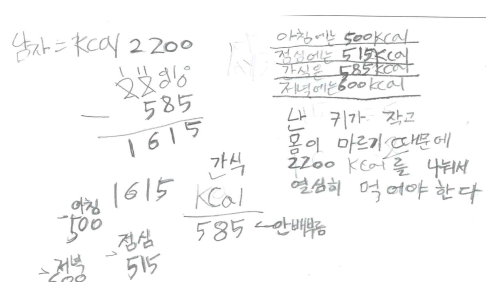 남자=Kcal 2200
2200
- 585
1615
1615
- 아침
500
- 점심
515
- 저녁
600
간식
Kcal
585 ← 안배부름
아침에는 500Kcal
점심에는 515Kcal
간식은 585Kcal
저녁에는 600Kcal
난 키가 작고
몸이 마르기 때문에
2200 Kcal를 나눠서
열심히 먹어야 한다